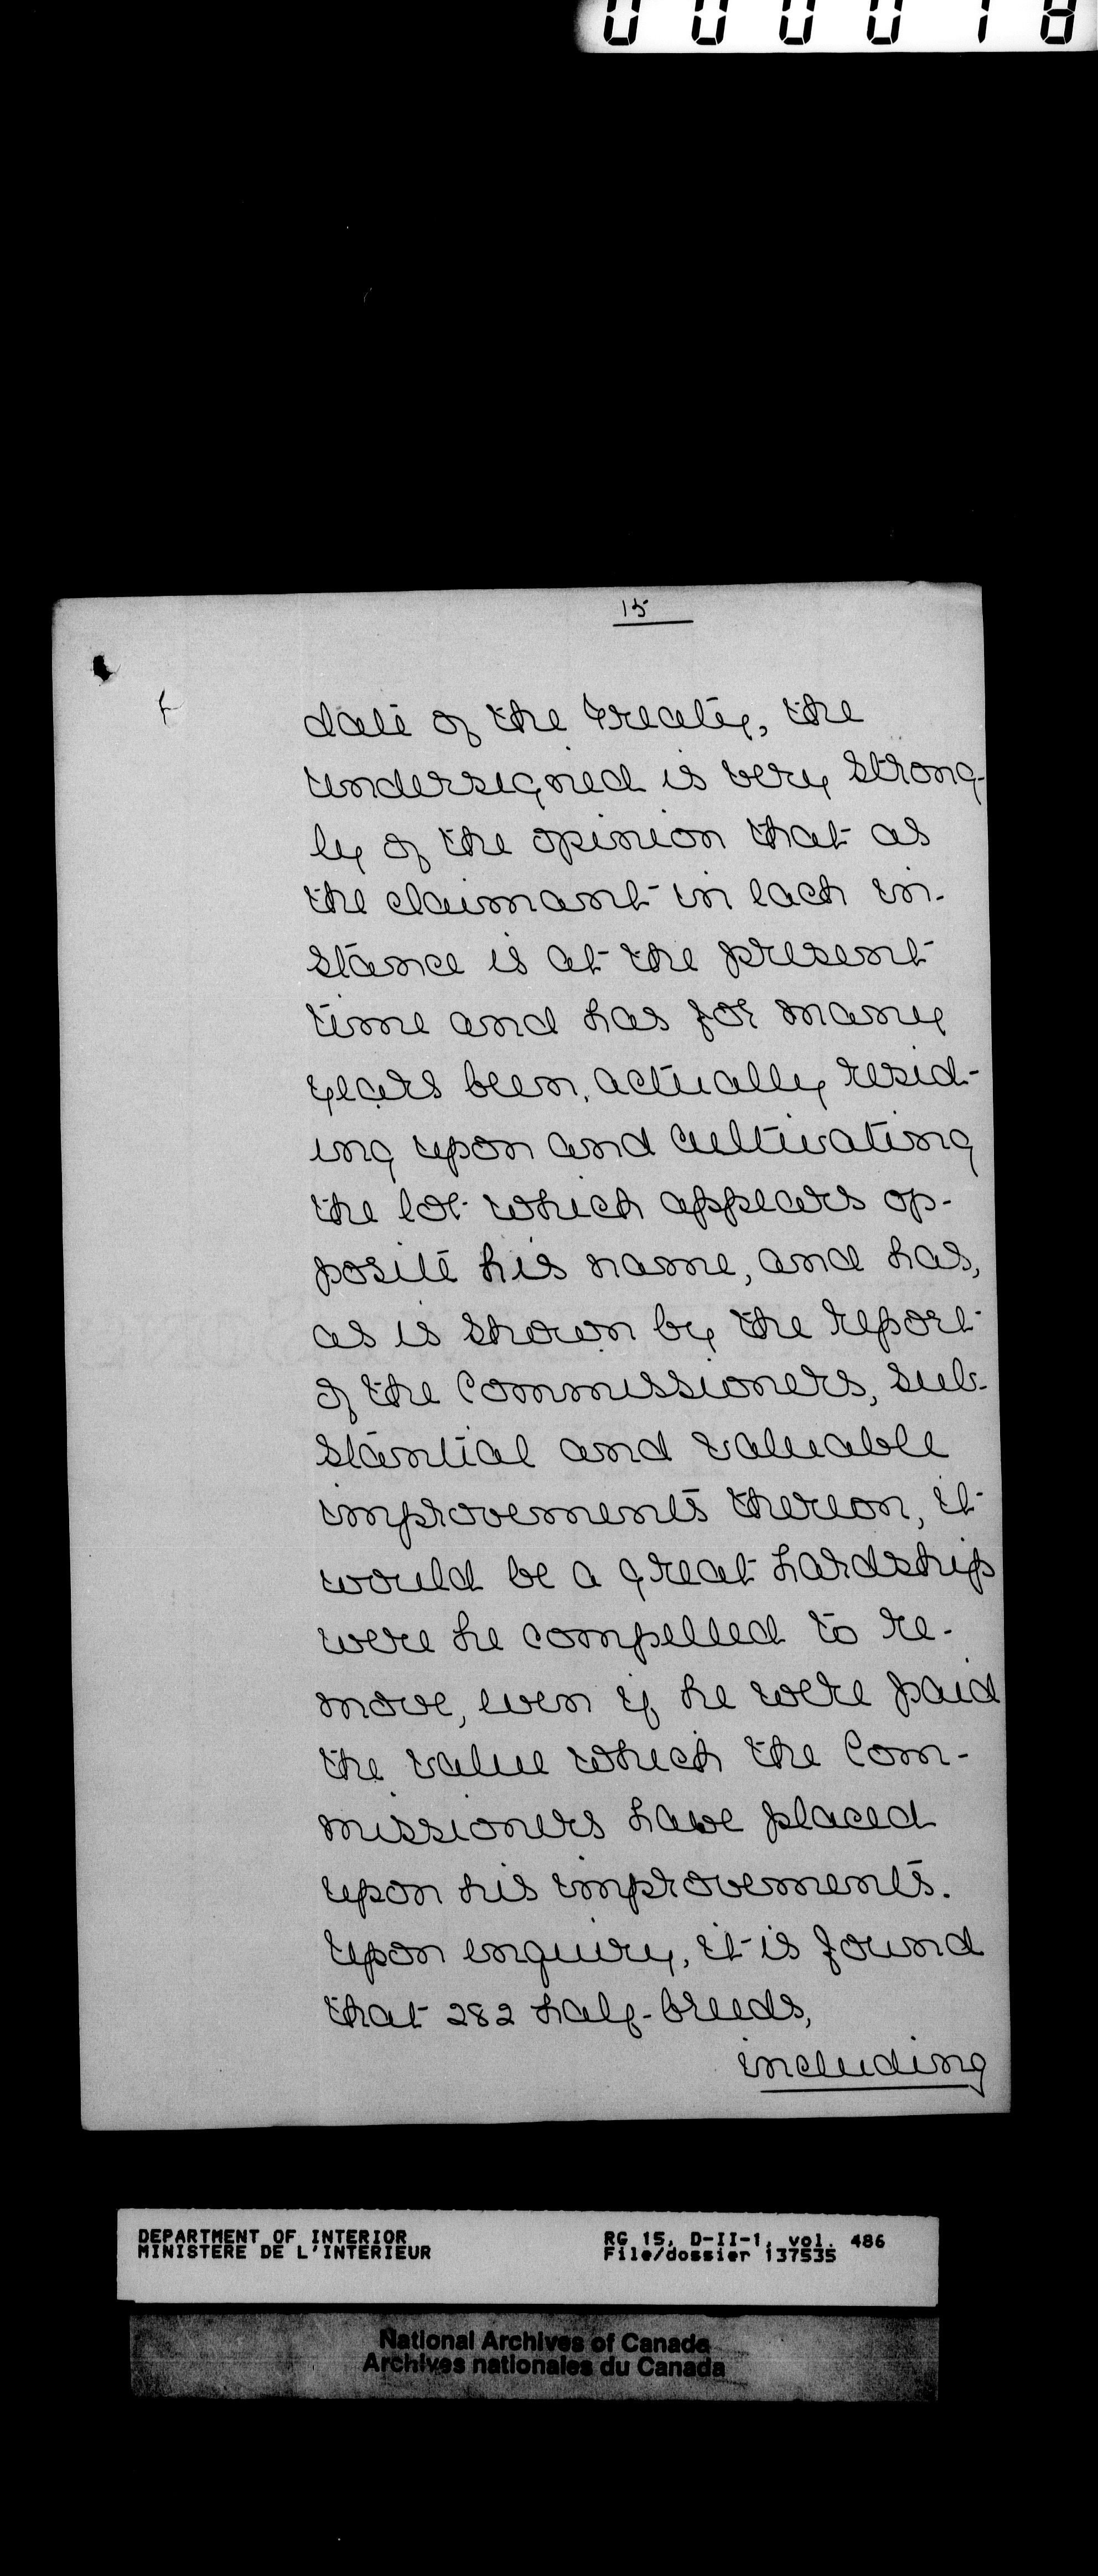 000018
15
date of the Treaty, the
undersigned is very strong-
ly of the opinion that as
the claimant in each in-
stance is at the present
time and has for many
years been, actually resid-
ing upon and cultivating
the lot which appears op-
posite his name, and has,
as is shown by the report
of the Commissioners, sub-
stantial and valuable
improvements thereon, it
would be a great hardship
were he compelled to re-
move, even if he were paid
the value which the Com-
missioners have placed
upon his improvements.
Upon enquiry, it is found
that 282 half-breeds,
including
DEPARTMENT OF INTERIOR
MINISTERE DE L'INTERIEUR
RG 15, D-II-1, vol. 486
File/dossier 137535
National Archives of Canada
Archives nationales du Canada